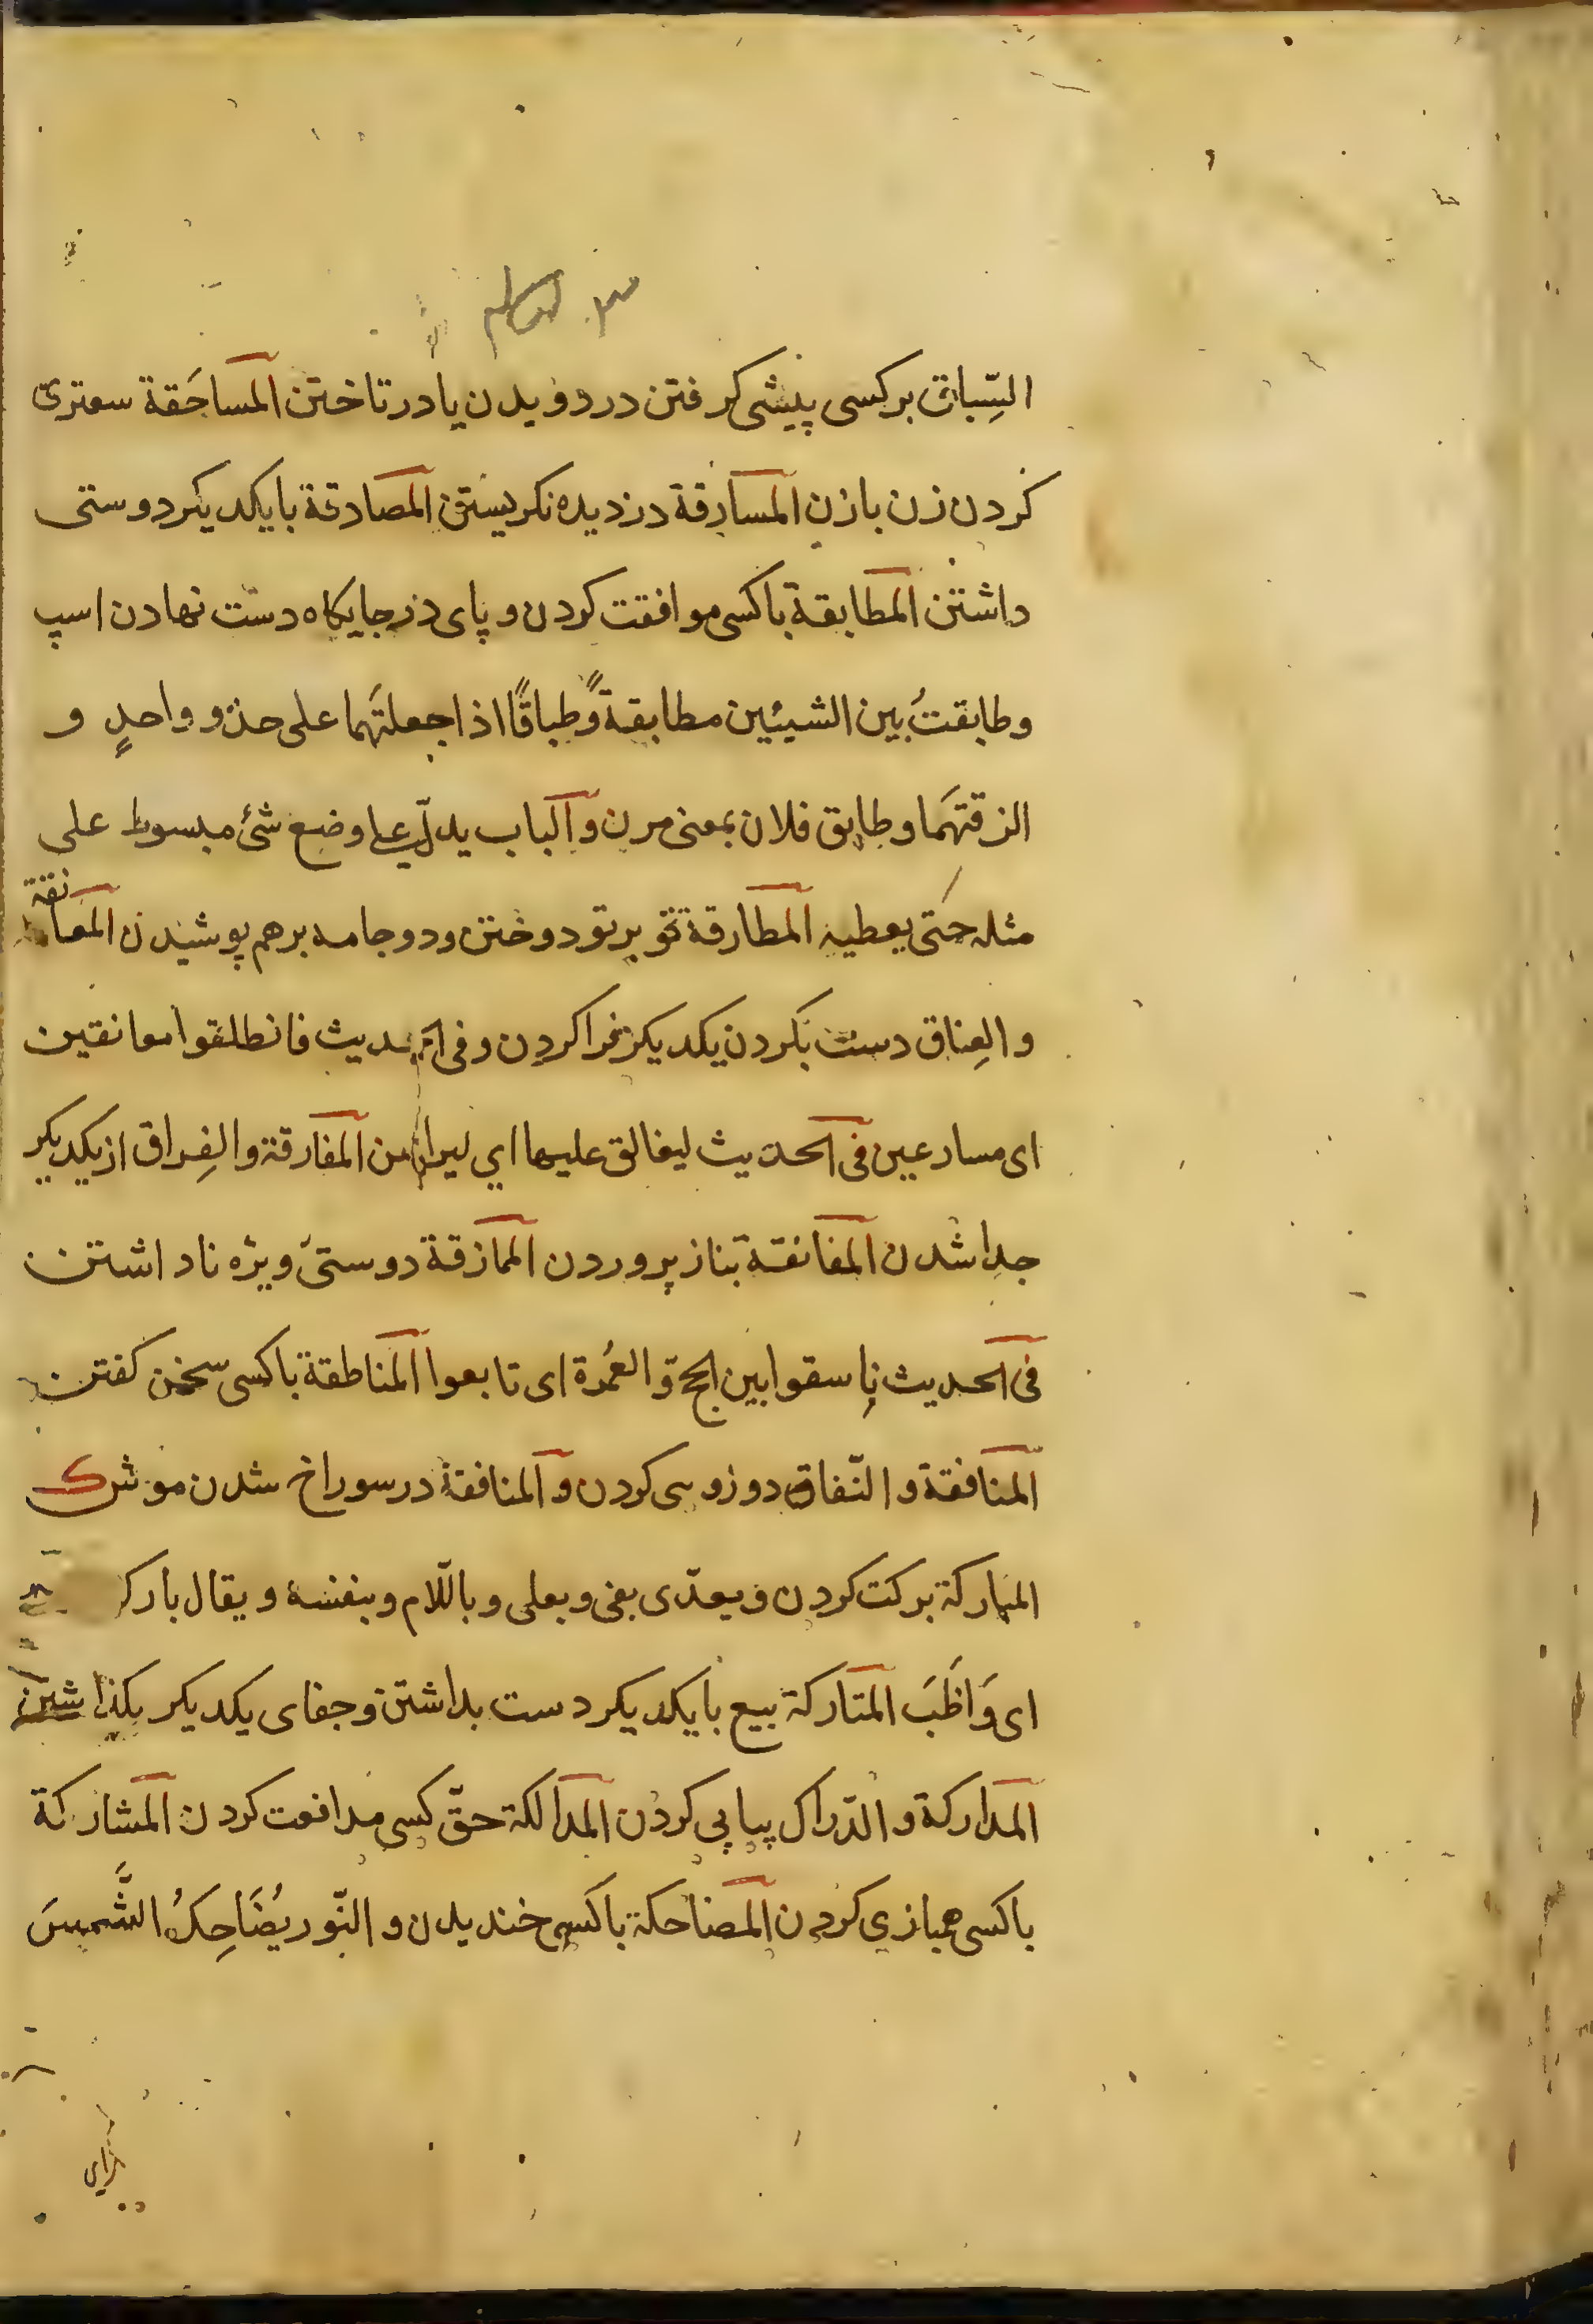 السِّباق برکسی پیشی کرفتن در دویدن یا در تاختن المساحَقة سعتری
کردن زن بازن المسارقة دزدیده نکریستن المصادقة بایکدیکر دوستی
داشتن المطابقة باکسی موافقت کردن و پای در جایکاه دست نهادن اسپ
وطابقتُ بین الشیئین مطابقةً وطباقًا اذا جعلتَهما علی حذو واحدٍ و
الزقتَهما وطابق فلان بمعنی مرن والباب یدلّ علی وضع شئ مبسوط علی
مثله حتی یغطیه المطارقة تو بر تو دوختن ودو جامه برهم پوشیدن المعانقة
والعِناق دست بکردن یکدیکر فرا کردن وفی الحدیث فانطلقوا معانقین
ای مسارعین فی الحدیث لیغالق علیها ای لیراهن المفارقة والفِراق از یکدیکر
جدا شدن المفانقة بناز پروردن المماذقة دوستی ویژه نا داشتن
فی الحدیث ناسقوا بین الحجّ والعُمرة ای تابعوا المناطقة باکسی سخن کفتن
المنافقة والنّفاق دوروی کردن والمنافقة در سوراخ شدن موش
المبارکة برکت کردن ویعدّی بفی وبعلی وباللّام وبنفسه ویقال بارک
ای وَاظَبَ المتارکة بیع بایکدیکر دست بداشتن وجفای یکدیکر بکذاشتن
المدارکة والدّراک پیاپی کردن المدالکة حقّ کسی مدافعت کردن المشارکة
باکسی همبازی کردن المضاحکة باکسی خندیدن والنّور یُضَاحِکُ الشَّمسَ